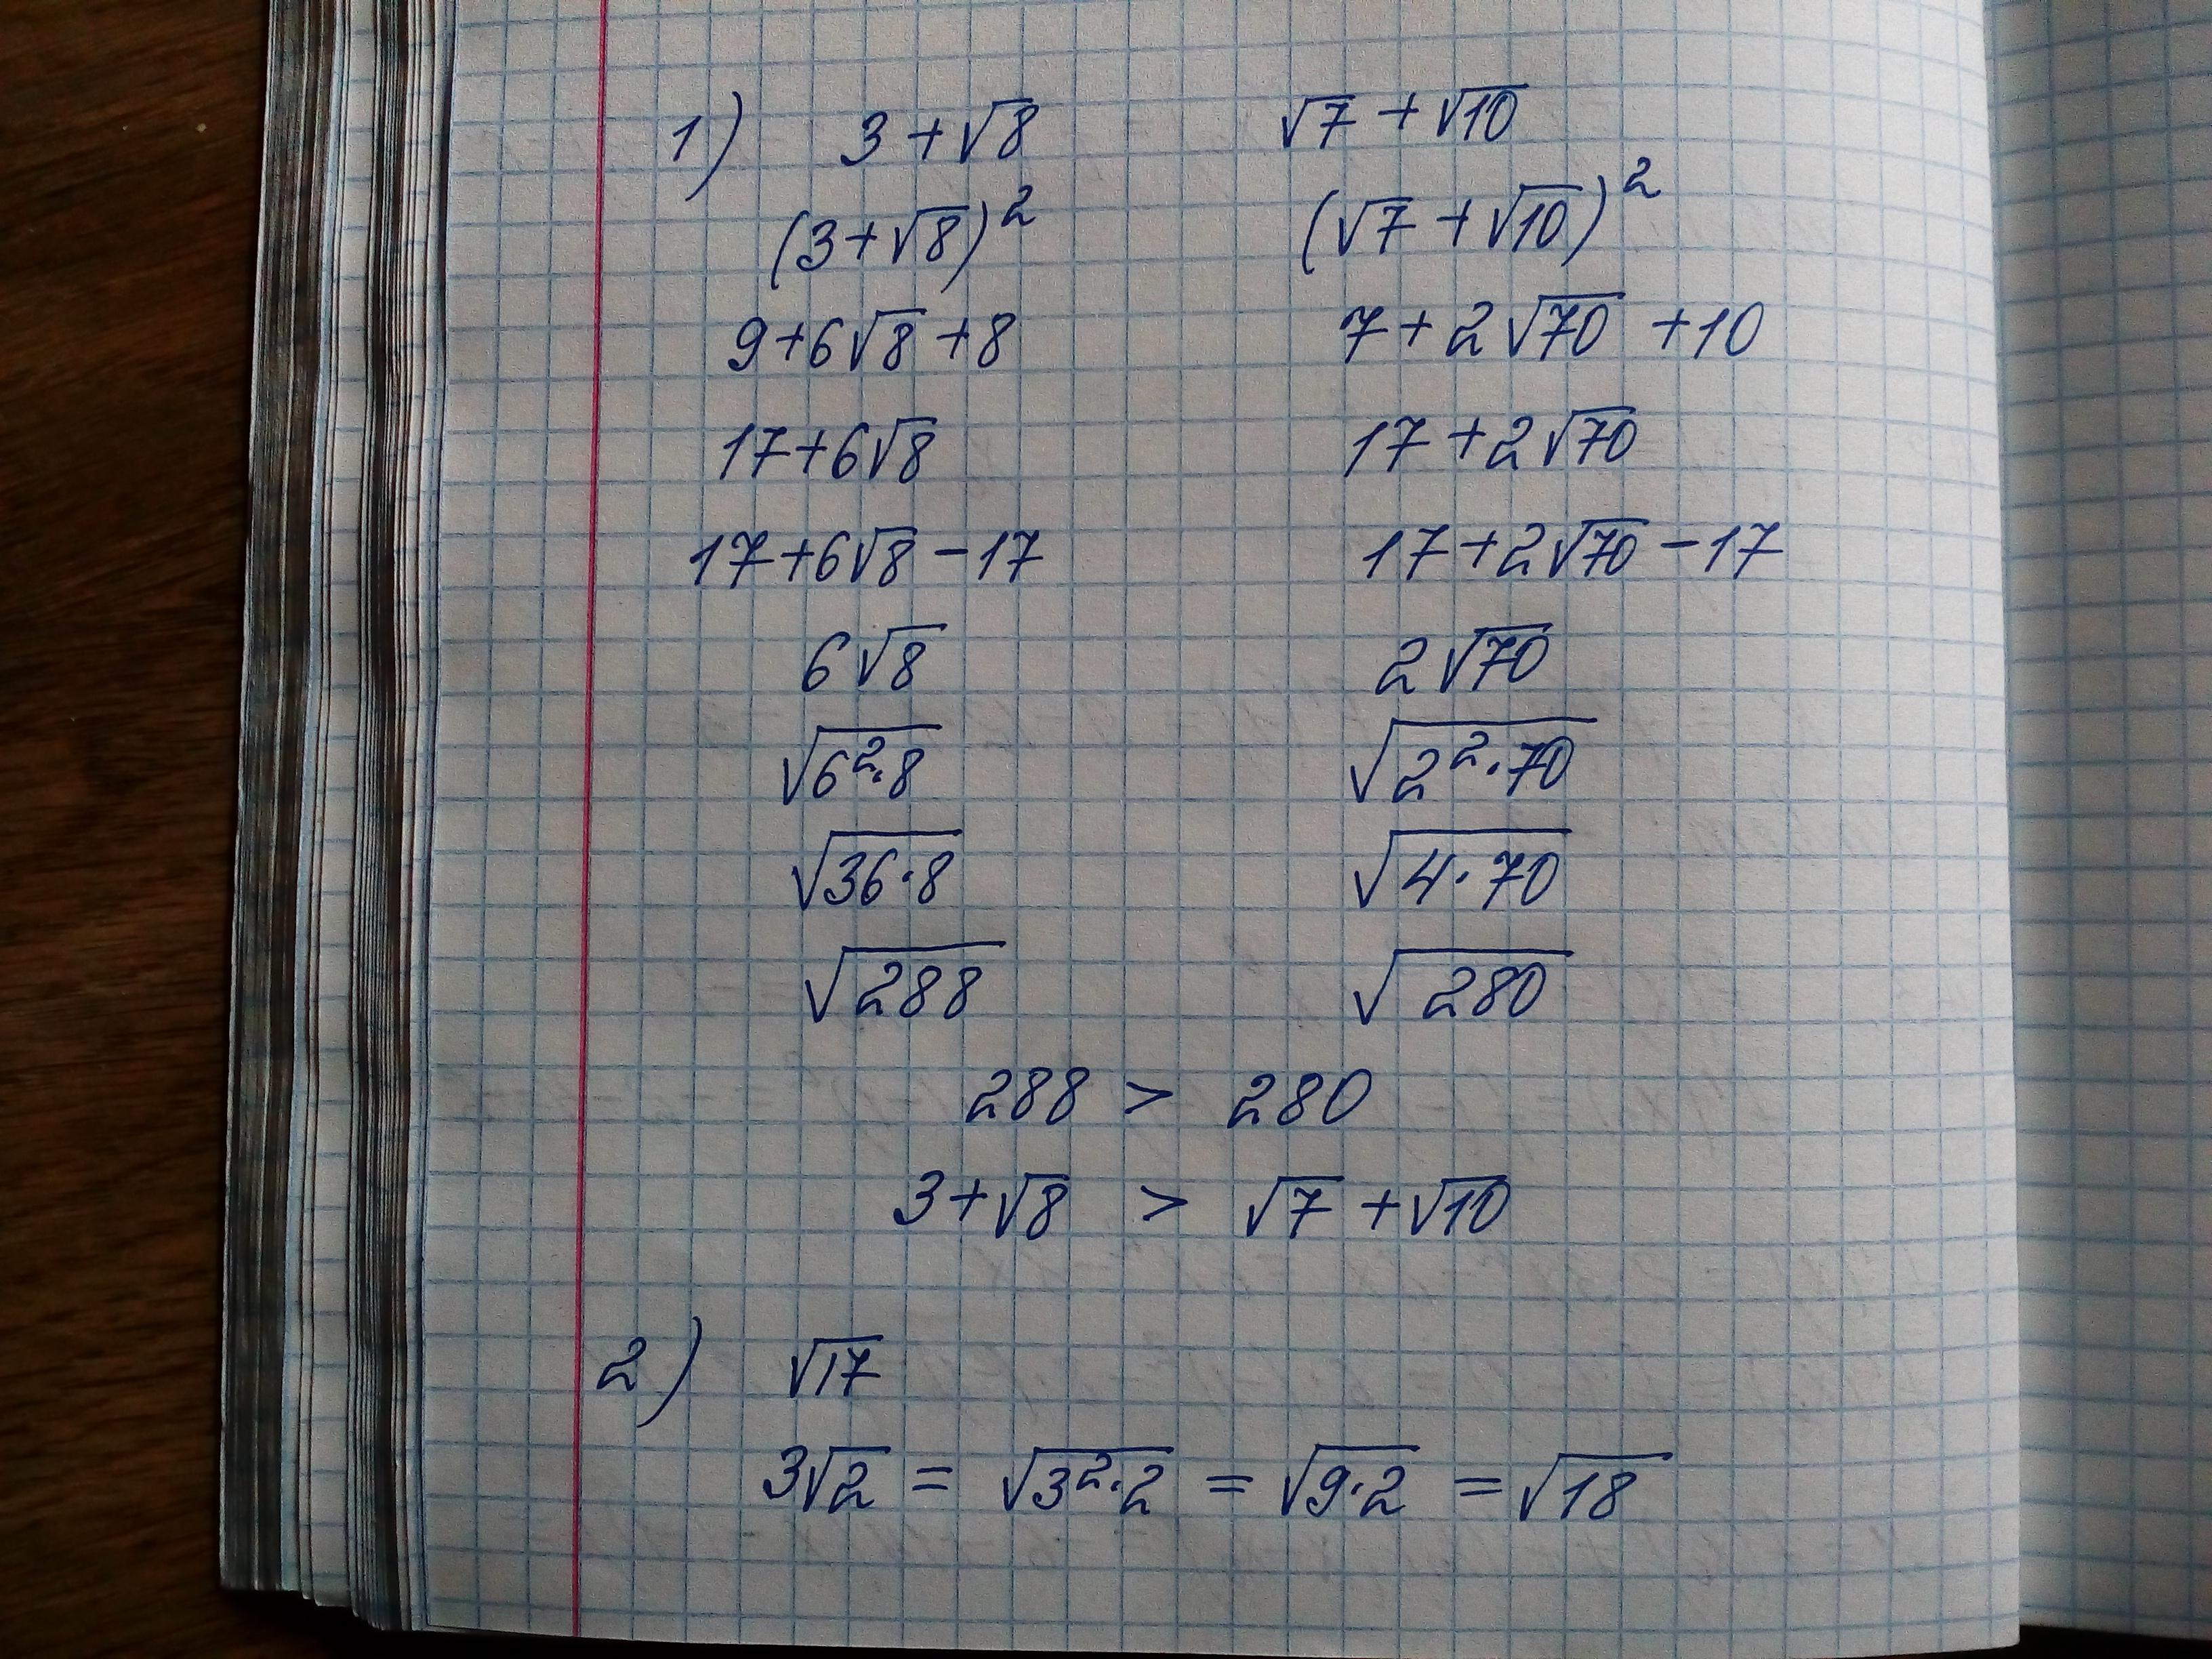 1) 3 + √8 √7 + √10
(3 + √8)² (√7 + √10)²
9 + 6√8 + 8 7 + 2√70 + 10
17 + 6√8 17 + 2√70
17 + 6√8 − 17 17 + 2√70 − 17
6√8 2√70
√(6²·8) √(2²·70)
√(36·8) √(4·70)
√288 √280
288 > 280
3 + √8 > √7 + √10
2) √17
3√2 = √(3²·2) = √(9·2) = √18